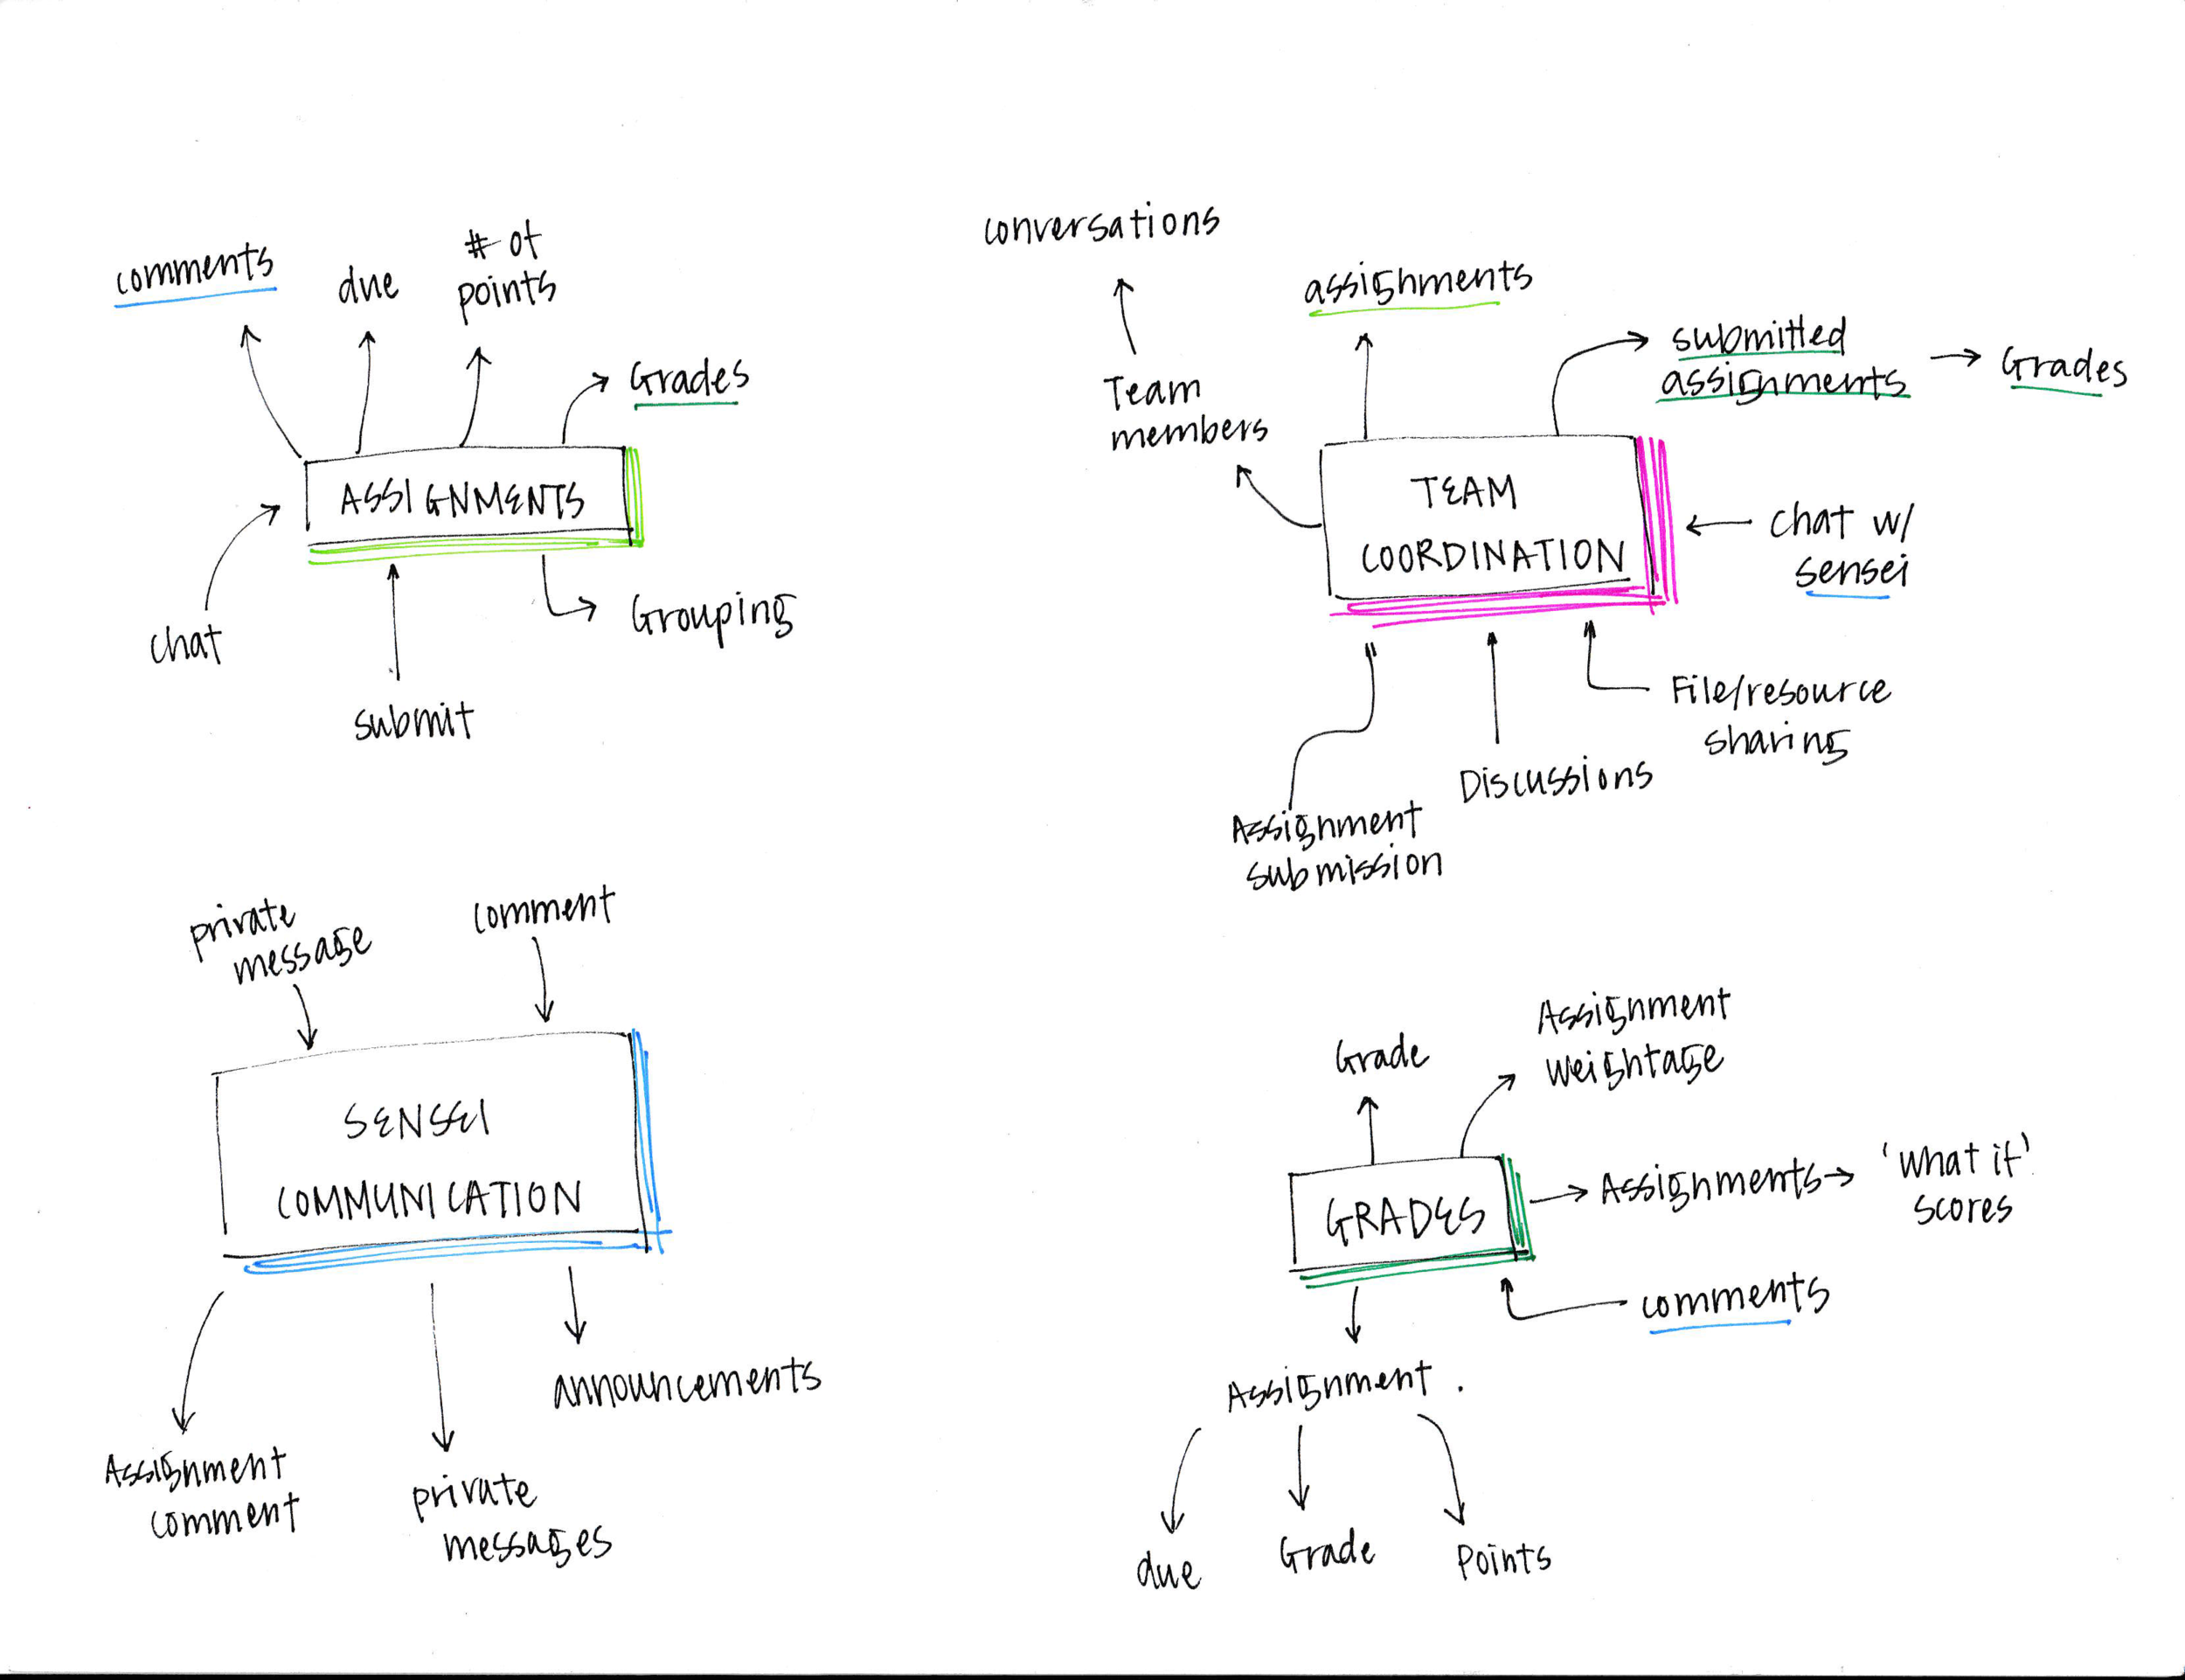 comments
due
# of
points
Grades
ASSIGNMENTS
chat
submit
Grouping
conversations
assignments
submitted
assignments
Grades
Team
members
TEAM
COORDINATION
chat w/
sensei
File/resource
sharing
Discussions
Assignment
submission
private
message
comment
SENSEI
COMMUNICATION
announcements
Assignment
comment
private
messages
Grade
Assignment
weightage
GRADES
Assignments
'what if'
scores
comments
Assignment.
due
Grade
Points